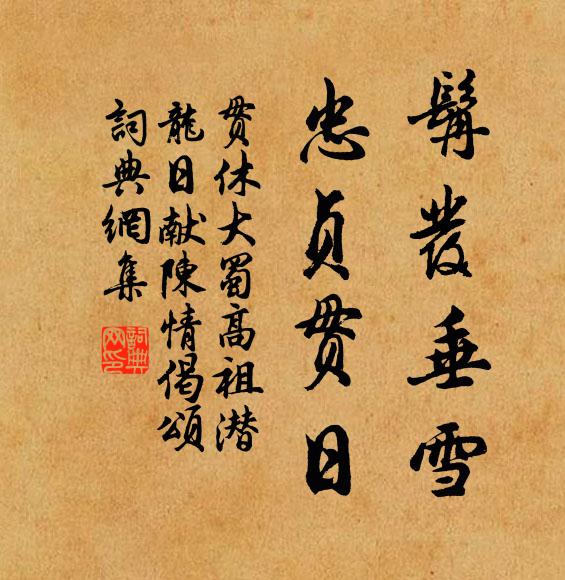 髯發垂雪
忠貞貫日
貫休大蜀高祖潜
龍日献陳情偈頌
詞典網集
詞典網印